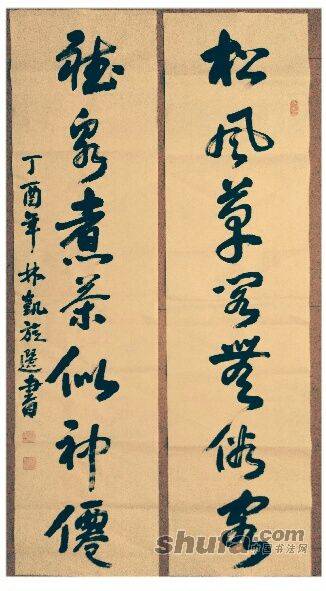 松風草閣無俗客
聽泉煮茶似神僊
丁酉年林凱旋選書
shufa.com
中国书法网